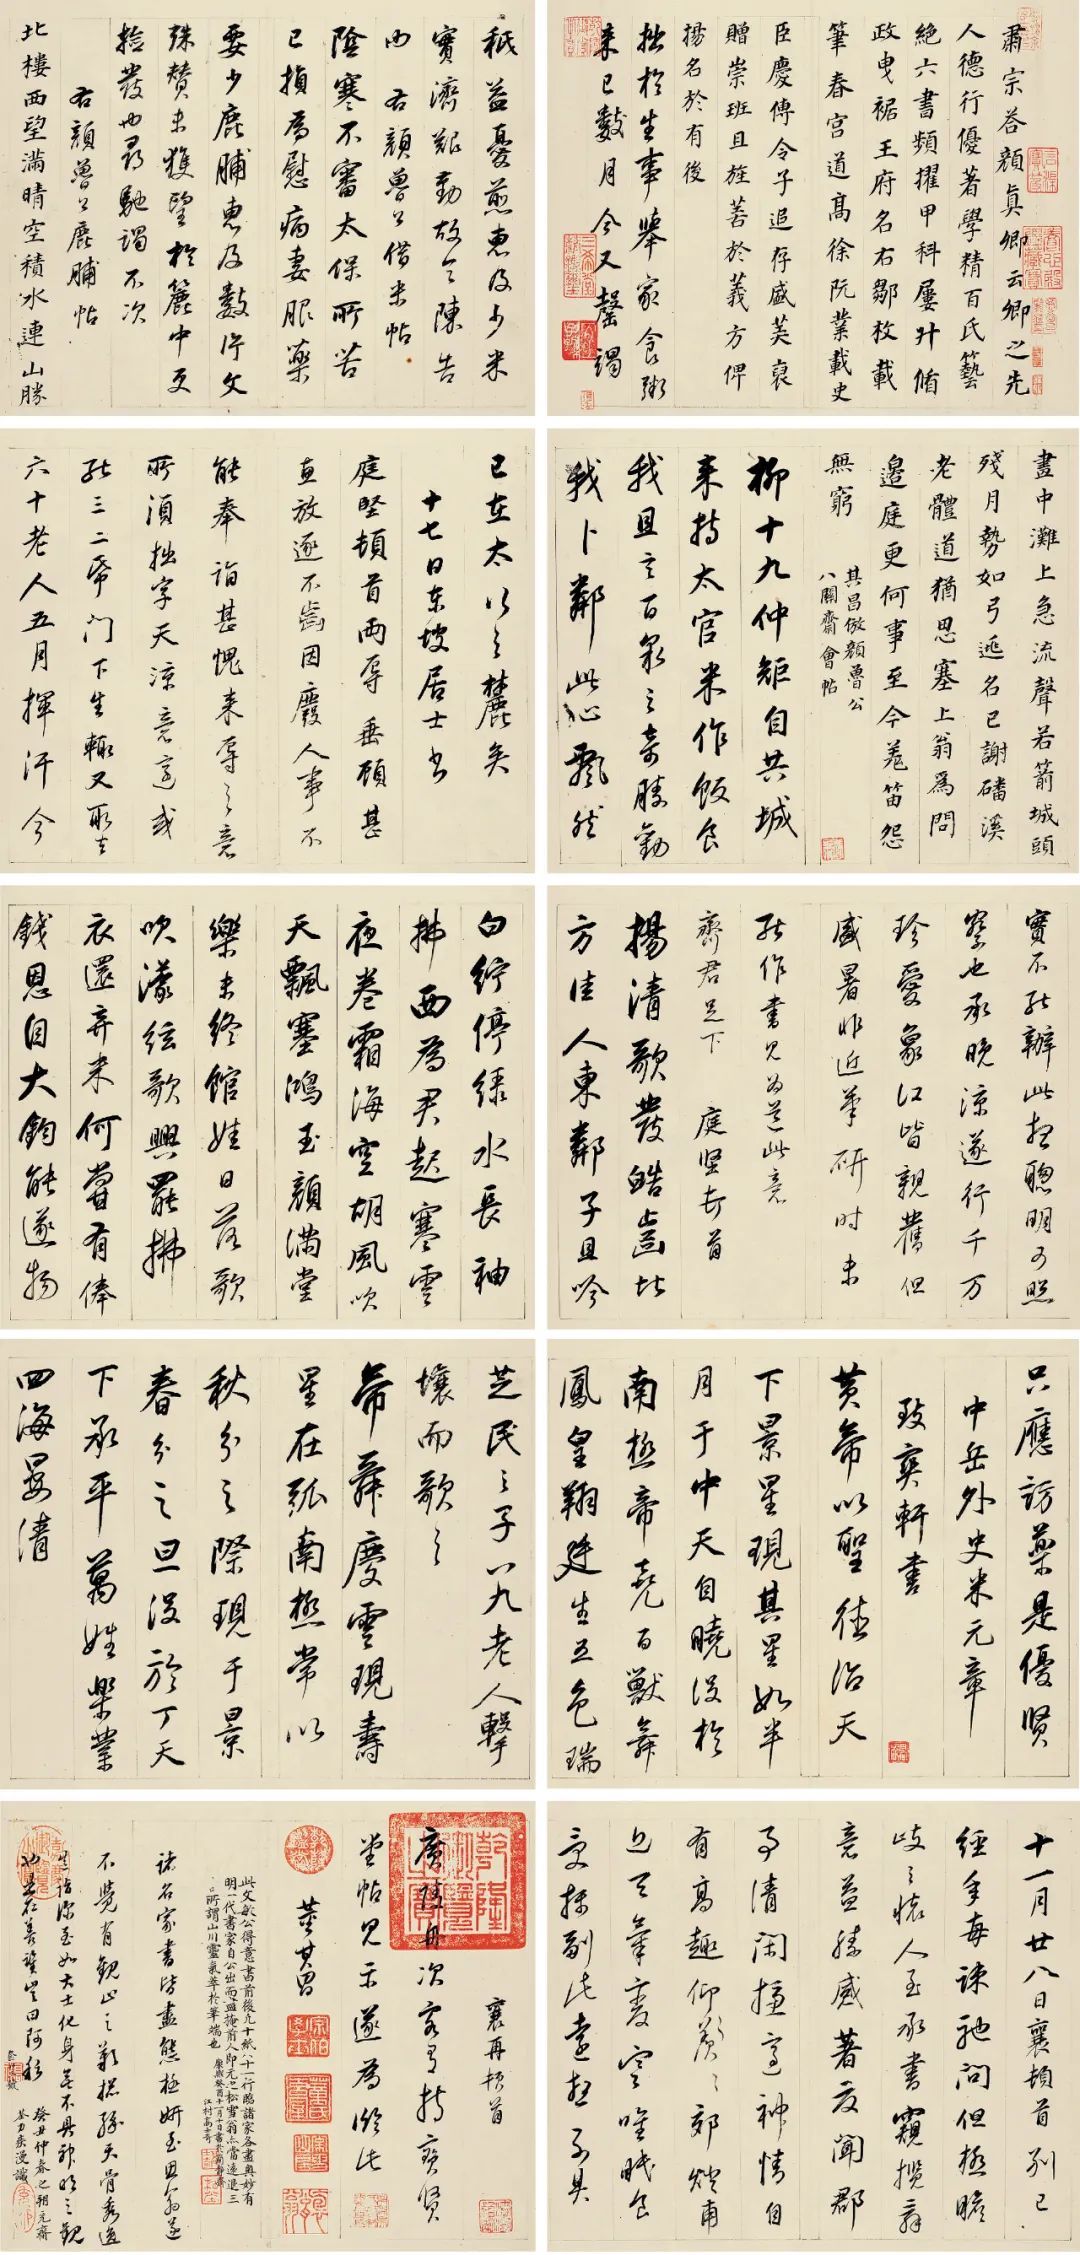 肅宗答顏眞卿云卿之先
人德行優著學精百氏藝
絕六書頻擢甲科屢升循
政曳裾王府名右鄒枚載
筆春宮道高徐阮業載史
臣慶傳令子追存盛美裒
贈崇班且旌善於義方俾
揚名於有後
拙於生事舉家食粥
來已數月今又罄竭
秖益憂煎惠及少米
實濟艱勤故令陳告
右顏魯公借米帖
陰寒不審太保所苦
已損為慰病妻服藥
要少鹿脯惠及數片文
殊贊未獲望於簏中更
撿發也尋馳謁不次
右顏魯公鹿脯帖
北樓西望滿晴空積水連山勝
畫中灘上急流聲若箭城頭
殘月勢如弓遙名已謝磻溪
老體道猶思塞上翁為問
邊庭更何事至今羌笛怨
無窮
其昌倣顏魯公
八關齋會帖
柳十九仲矩自共城
來持太官米作飯食
我且言百泉之奇勝勸
我卜鄰此心飄然
已在太行之麓矣
十七日東坡居士書
庭堅頓首兩辱垂顧甚
惠放逐不齒因廢人事不
能奉詣甚愧來辱之意
所須拙字天涼意適或
能三二紙門下生輒又取去
六十老人五月揮汗今
實不能辦此想聰明可照
察也承晚涼遂行千万
珍愛象江皆親舊但
盛暑非近筆研時未
能作書見為道此意
齊君足下 庭堅頓首
揚清歌發皓齒北
方佳人東鄰子且吟
白紵停綠水長袖
拂面為君起寒雲
夜卷霜海空胡風吹
天飄塞鴻玉顏滿堂
樂未終館娃日落歌
吹濛絃歌興罷拂
衣還弃米何嘗有俸
錢恩自大鈞能遂物
只應訪藥是優賢
中岳外史米元章
致爽軒書
黃帝以聖德治天
下景星現其星如半
月于中天自曉沒於
南極帝堯百獸舞
鳳皇翔廷生五色瑞
芝民之子八九老人擊
壤而歌之
帝舜慶雲現壽
星在弧南極常以
秋分之際現于景
春分之旦沒於丁天
下承平萬姓樂業
四海晏清
十一月廿八日襄頓首別已
經年每疎馳問但極瞻
岐之懷人至承書竊攬辭
意益勝盛著反聞郡
事清閑神情自
有高趣仰羨
天氣變寒唯眠食
副此遠想不具
襄再頓首
廣陵舟次客有持寶賢
堂帖見示遂為臨此
董其昌
此文敏公得意書前後九十紙八十一行臨諸家各盡奧妙有
明一代書家自公出而盡掩前人即元之松雪翁亦當遠退三
所謂山川靈氣萃於筆端也
江村高士奇
諸名家書皆盡態極妍至思翁遂
不覺有觀止之歎